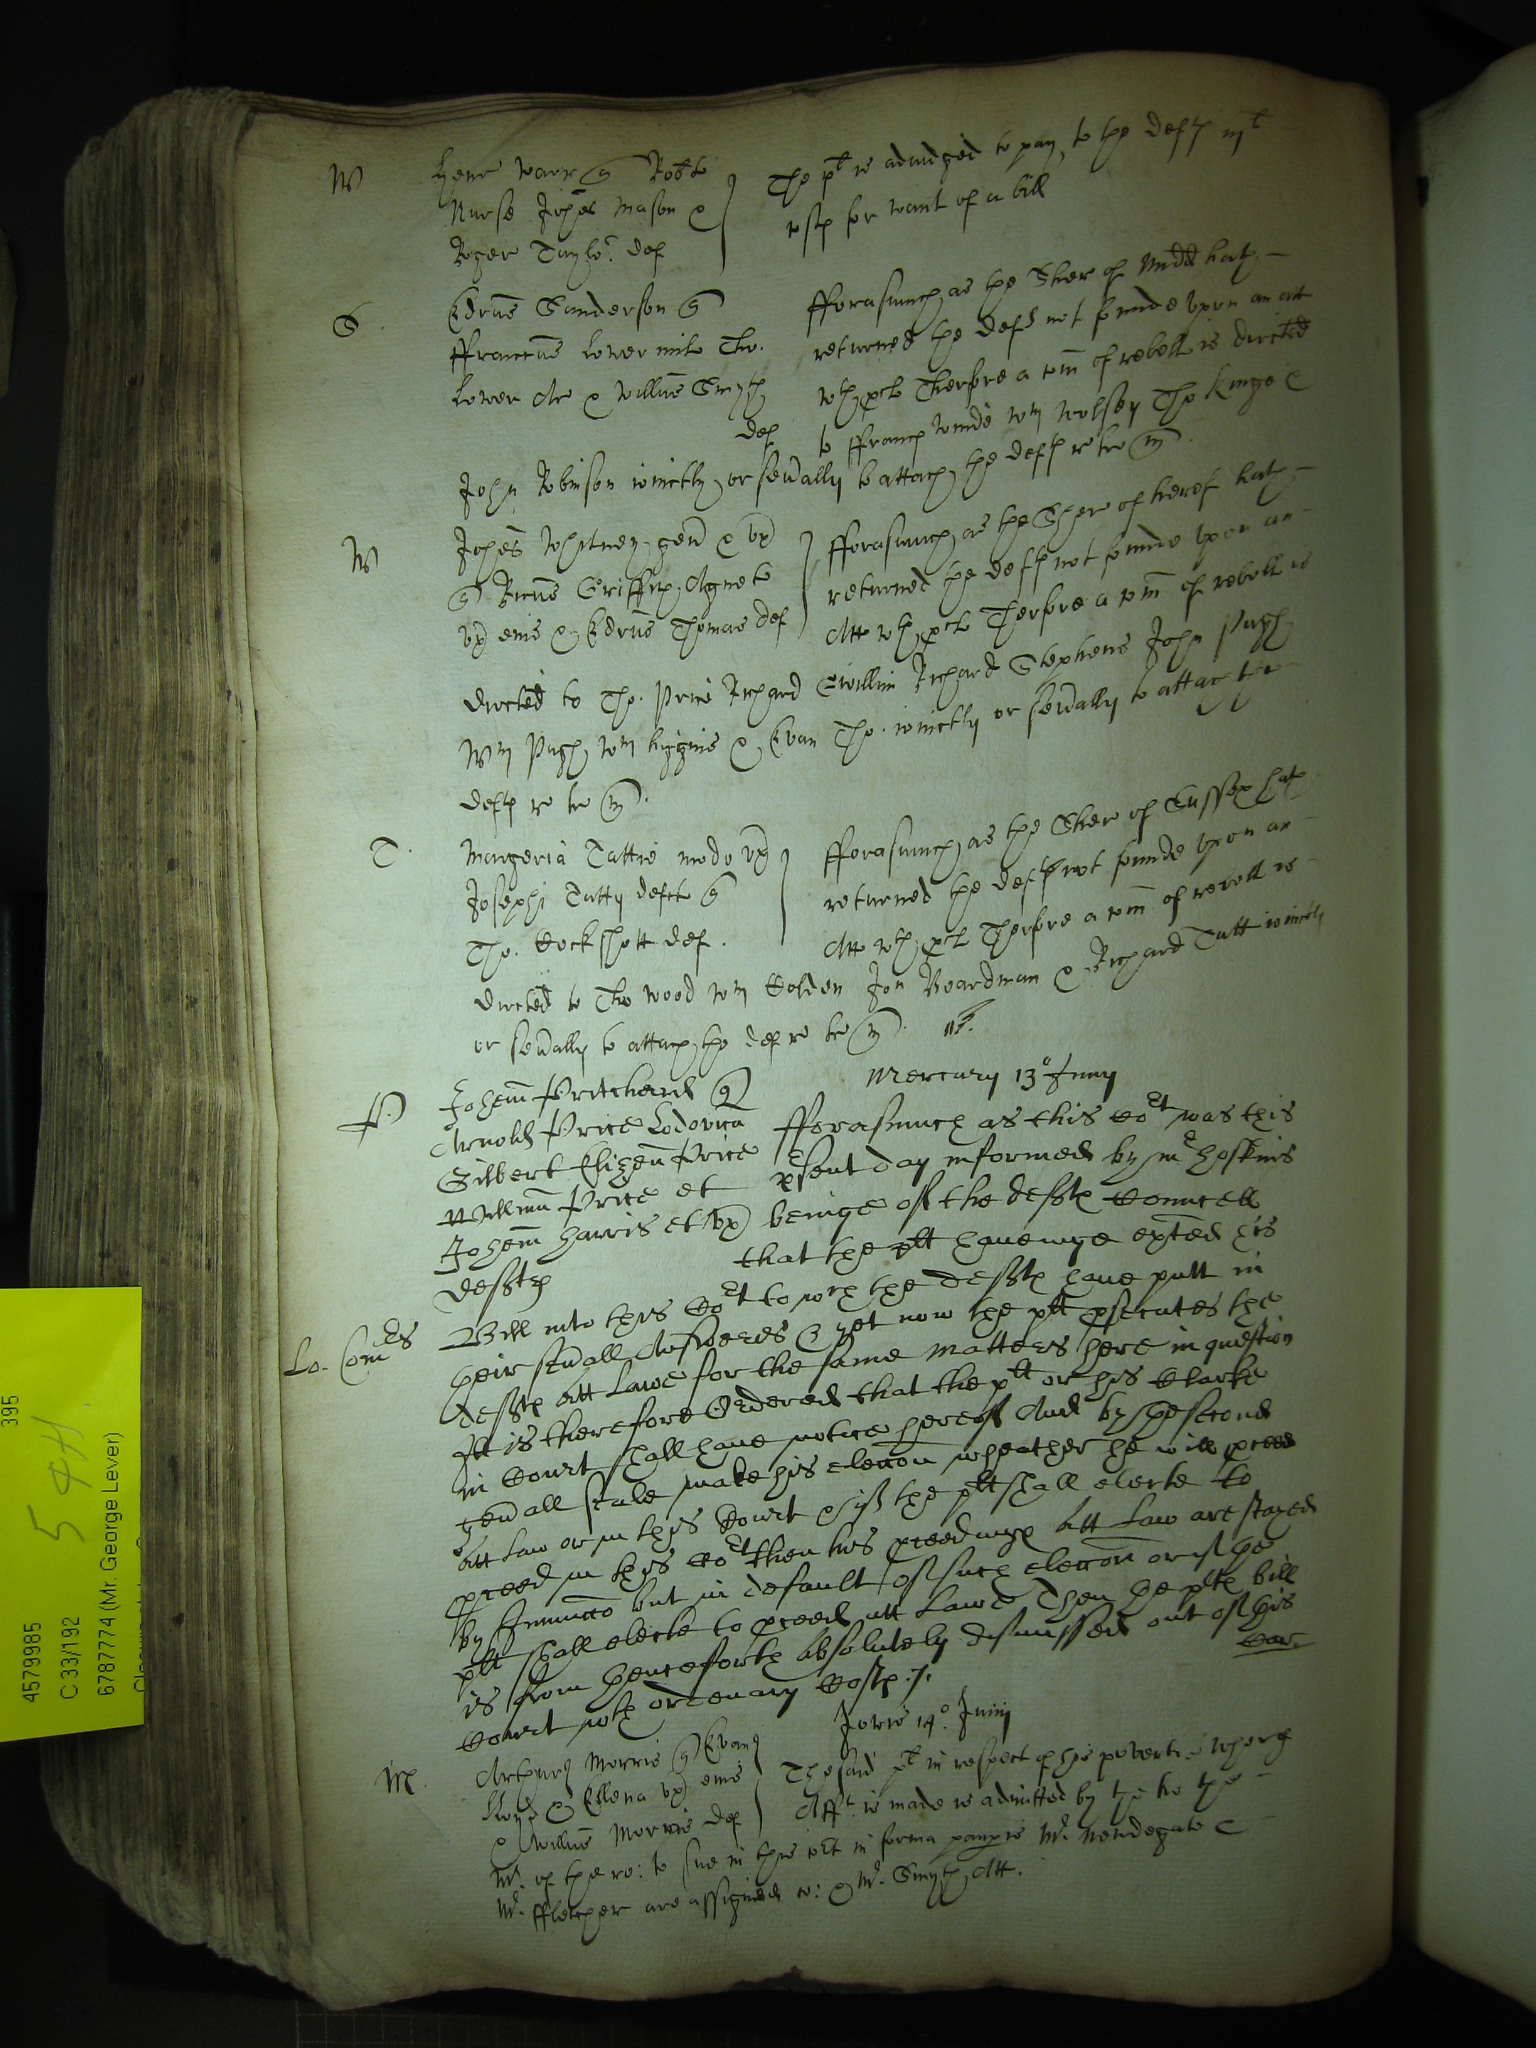 W
Henr Warr Rob'to
Nurse Joh'es Mason &
Roger Taylo'r def
The pl't is adiudged to pay to the deft's
costs for want of a bill
S.
Edrus Sanderson
ffranciscus Lower mil' Tho.
Lower Ar & Willm's Smyth
def
fforasmuch as the Sher of Midd hath
returned the defts not founde vpon an att
w'th procl' Therfore a com' of rebell is directed
to ffranc' Winde W'm Wolsey Tho Kinge &
John Robinson ioinctly or seu'ally to attach the defts re
W
Joh'es Whitney gen' & vx'
Ric'us Griffith Agnet'
vx' eius & Edrus Thomas def
fforasmuch as the Sher of heref hath
returned the defts not founde vpon an
Att w'th procl' Therfore a com' of rebell is
directed to Tho. Price Richard Gwillim Richard Stephens John Pugh
W'm Pugh W'm higgins & Evan Tho. ioinctly or seu'ally to attach the
defts re
T.
Margeria Tattie modo vx'
Josephi Tutty def'cto
Tho. Cockshott def.
fforasmuch as the Sher of Sussex hath
returned the defts not founde vpon an
Att w'th procl' Therfore a com' of rebell is
directed to Tho wood W'm Colden Jon Boardman & Richard Tutt ioinctly
or seu'ally to attach the def re
Mercury 13° Juny
P
Johem' Pritchard
Arnold' Price Lodovicu'
Gilbert Elizeu' Price
Willimu' Price et
Johem' Harris et vx'
deff'tes
fforasmuch as this Co'rt was this
p'sent day informed by m'r Hoskins
beinge of the deffts Councell
that the pl't haueinge exhited his
Lo. Com'rs
Bill into this Co'rt to w'ch the deffts haue putt in
their seu'all Answeres & yet now the plt p'secutes the
deffts att Lawe for the same matters here in question
Itt is therefore Ordered that the pl't or his Clarke
in Court shall haue notice hereof And by the second
gen'all seale make his elecc'on wheather he will p'ceed
att Law or in this Court & if the plt shall electe to
p'ceed in this Co'rt then his p'ceedings att Law are stayed
by Iniuncc'o but in default of such elecc'on or if the
plt shall electe to p'ceed att Lawe Then the plts bill
is from henceforth absolutely dismissed out of this
Court with ordenary Costs
Jovis 14° Junij
M.
Arthur' Morris Evan'
lloyd & Ellena vx' eius
& Willm's Morris def
The said pl't in respect of his povertie wherof
Aff't is made is admitted by the ho the
M'r of the ro: to sue in this co'rt in forma pauperis M'r Newdegate &
M'r ffletcher are assigned co: & M'r Smyth Att.
395
5 4H.
4579985
C 33/192
6787774 (Mr. George Lever)